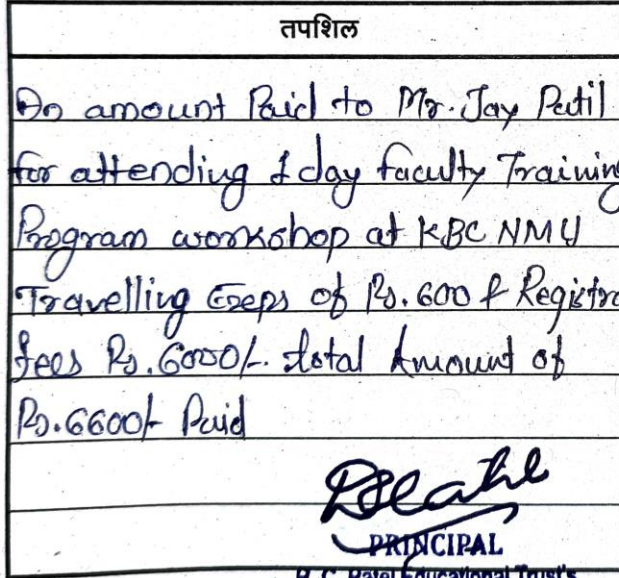 तपशिल
An amount Paid to Mr. Jay Patil
for attending 1 day faculty Training
Program workshop at KBC NMU
Travelling Exeps of Rs. 600 & Registra
fees Rs. 6000/- total Amount of
Rs. 6600/- Paid
PRINCIPAL
R. C. Patel Educational Trust's